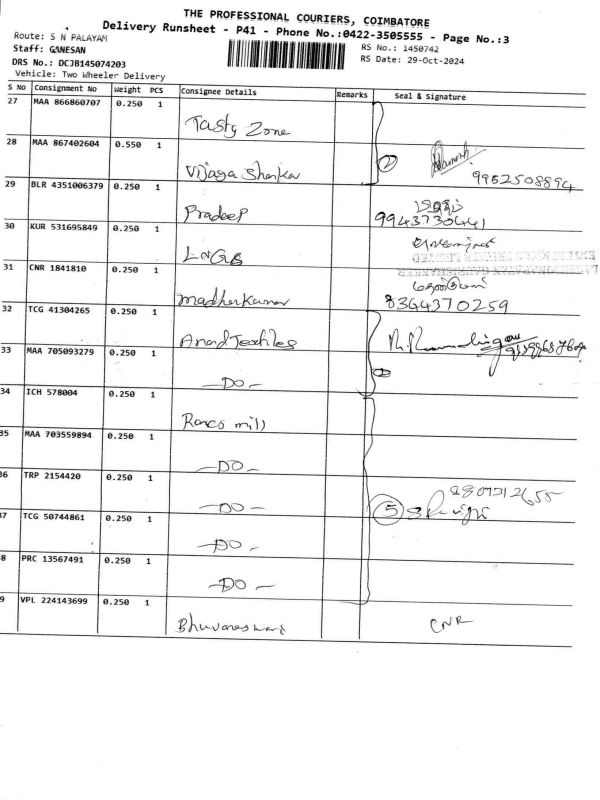 THE PROFESSIONAL COURIERS, COIMBATORE
Delivery Runsheet - P41 - Phone No.:0422-3505555 - Page No.:3
Route: S N PALAYAM
RS No.: 1450742
Staff: GANESAN
RS Date: 29-Oct-2024
DRS No.: DCJB145074203
Vehicle: Two Wheeler Delivery
S No Consignment No Weight PCS Consignee Details Remarks Seal & Signature
27 MAA 866860707 0.250 1 Tasty Zone
28 MAA 867402604 0.550 1 Vijaya Shankar 2 9952508894
29 BLR 4351006379 0.250 1 Pradeep 9943730441
30 KUR 531695849 0.250 1 LNGB
31 CNR 1841810 0.250 1 Madhankumar 8344370259
32 TCG 41304265 0.250 1 Anand Textiles
33 MAA 705093279 0.250 1 -DO- 2
34 ICH 578004 0.250 1 Ranco mill
35 MAA 703559894 0.250 1 -DO-
36 TRP 2154420 0.250 1 -DO- 5
37 TCG 50744861 0.250 1 -DO-
38 PRC 13567491 0.250 1 -DO-
9 VPL 224143699 0.250 1 Bhuvaneswari CNR